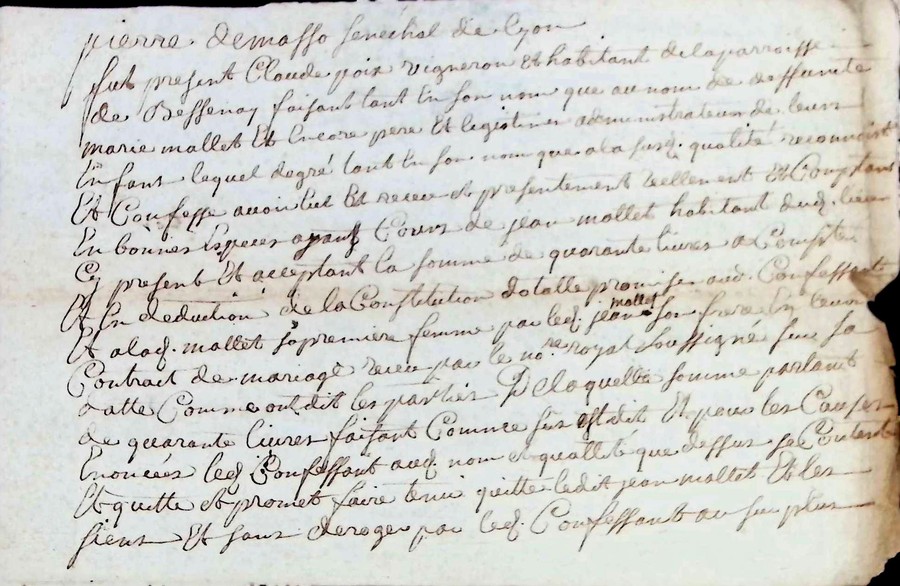 pierre demasso senechal de lyon
fut present Claude poix vigneron Et habitant delaparroisse
de Bessenay faisant tant En son nom que au nom de deffunte
marie mallet Et Encore pere Et legitime administrateur de leurs
Enfant lequel degré tant En son nom que a la susd. qualité reconnoist
Et Confesse avoir Eut Et receu et presentement reellement et Comptant
En bonnes Especes ayant Cours de jean mallet habitant dud. lieu
Cy present Et acceptant la somme de quarante livres a Compte
Et En deduction de la Constitution dotalle promise aud. Confessant
Et alad. mallet sa premiere femme par led. jean mallet son frere En leur
Contract de mariage receu par le no.re royal soussigné sur sa
datte Comme ont dit les parties De laquelle somme partant
de quarante livres faisant Comme sus est dit Et pour les Causes
Enoncées led. Confessant aud. nom et quallité que dessus se Contente
Et quitte et promet faire tenir quitte ledit jean mallet Et les
siens Et sans deroger par led. Confessant au surplus